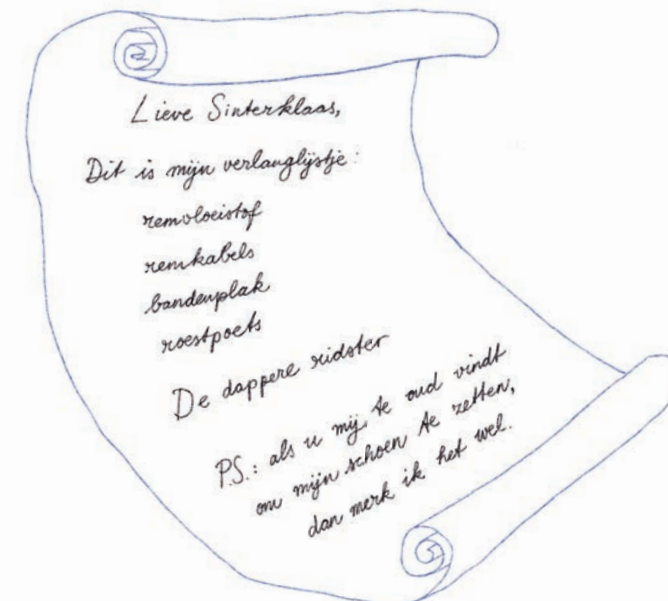 Lieve Sinterklaas,
Dit is mijn verlanglijstje:
remvloeistof
remkabels
bandenplak
roestpoets
De dappere ridster
P.S.: als u mij te oud vindt
om mijn schoen te zetten,
dan merk ik het wel.